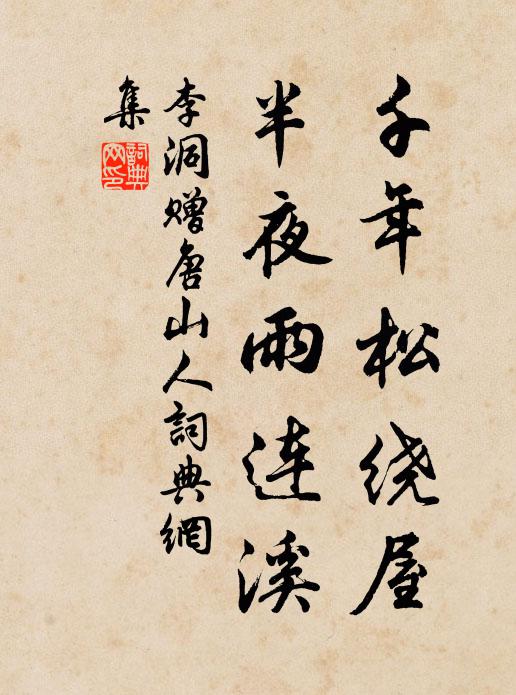 千年松绕屋
半夜雨连溪
李洞赠唐山人詞典網
集
詞典
网印